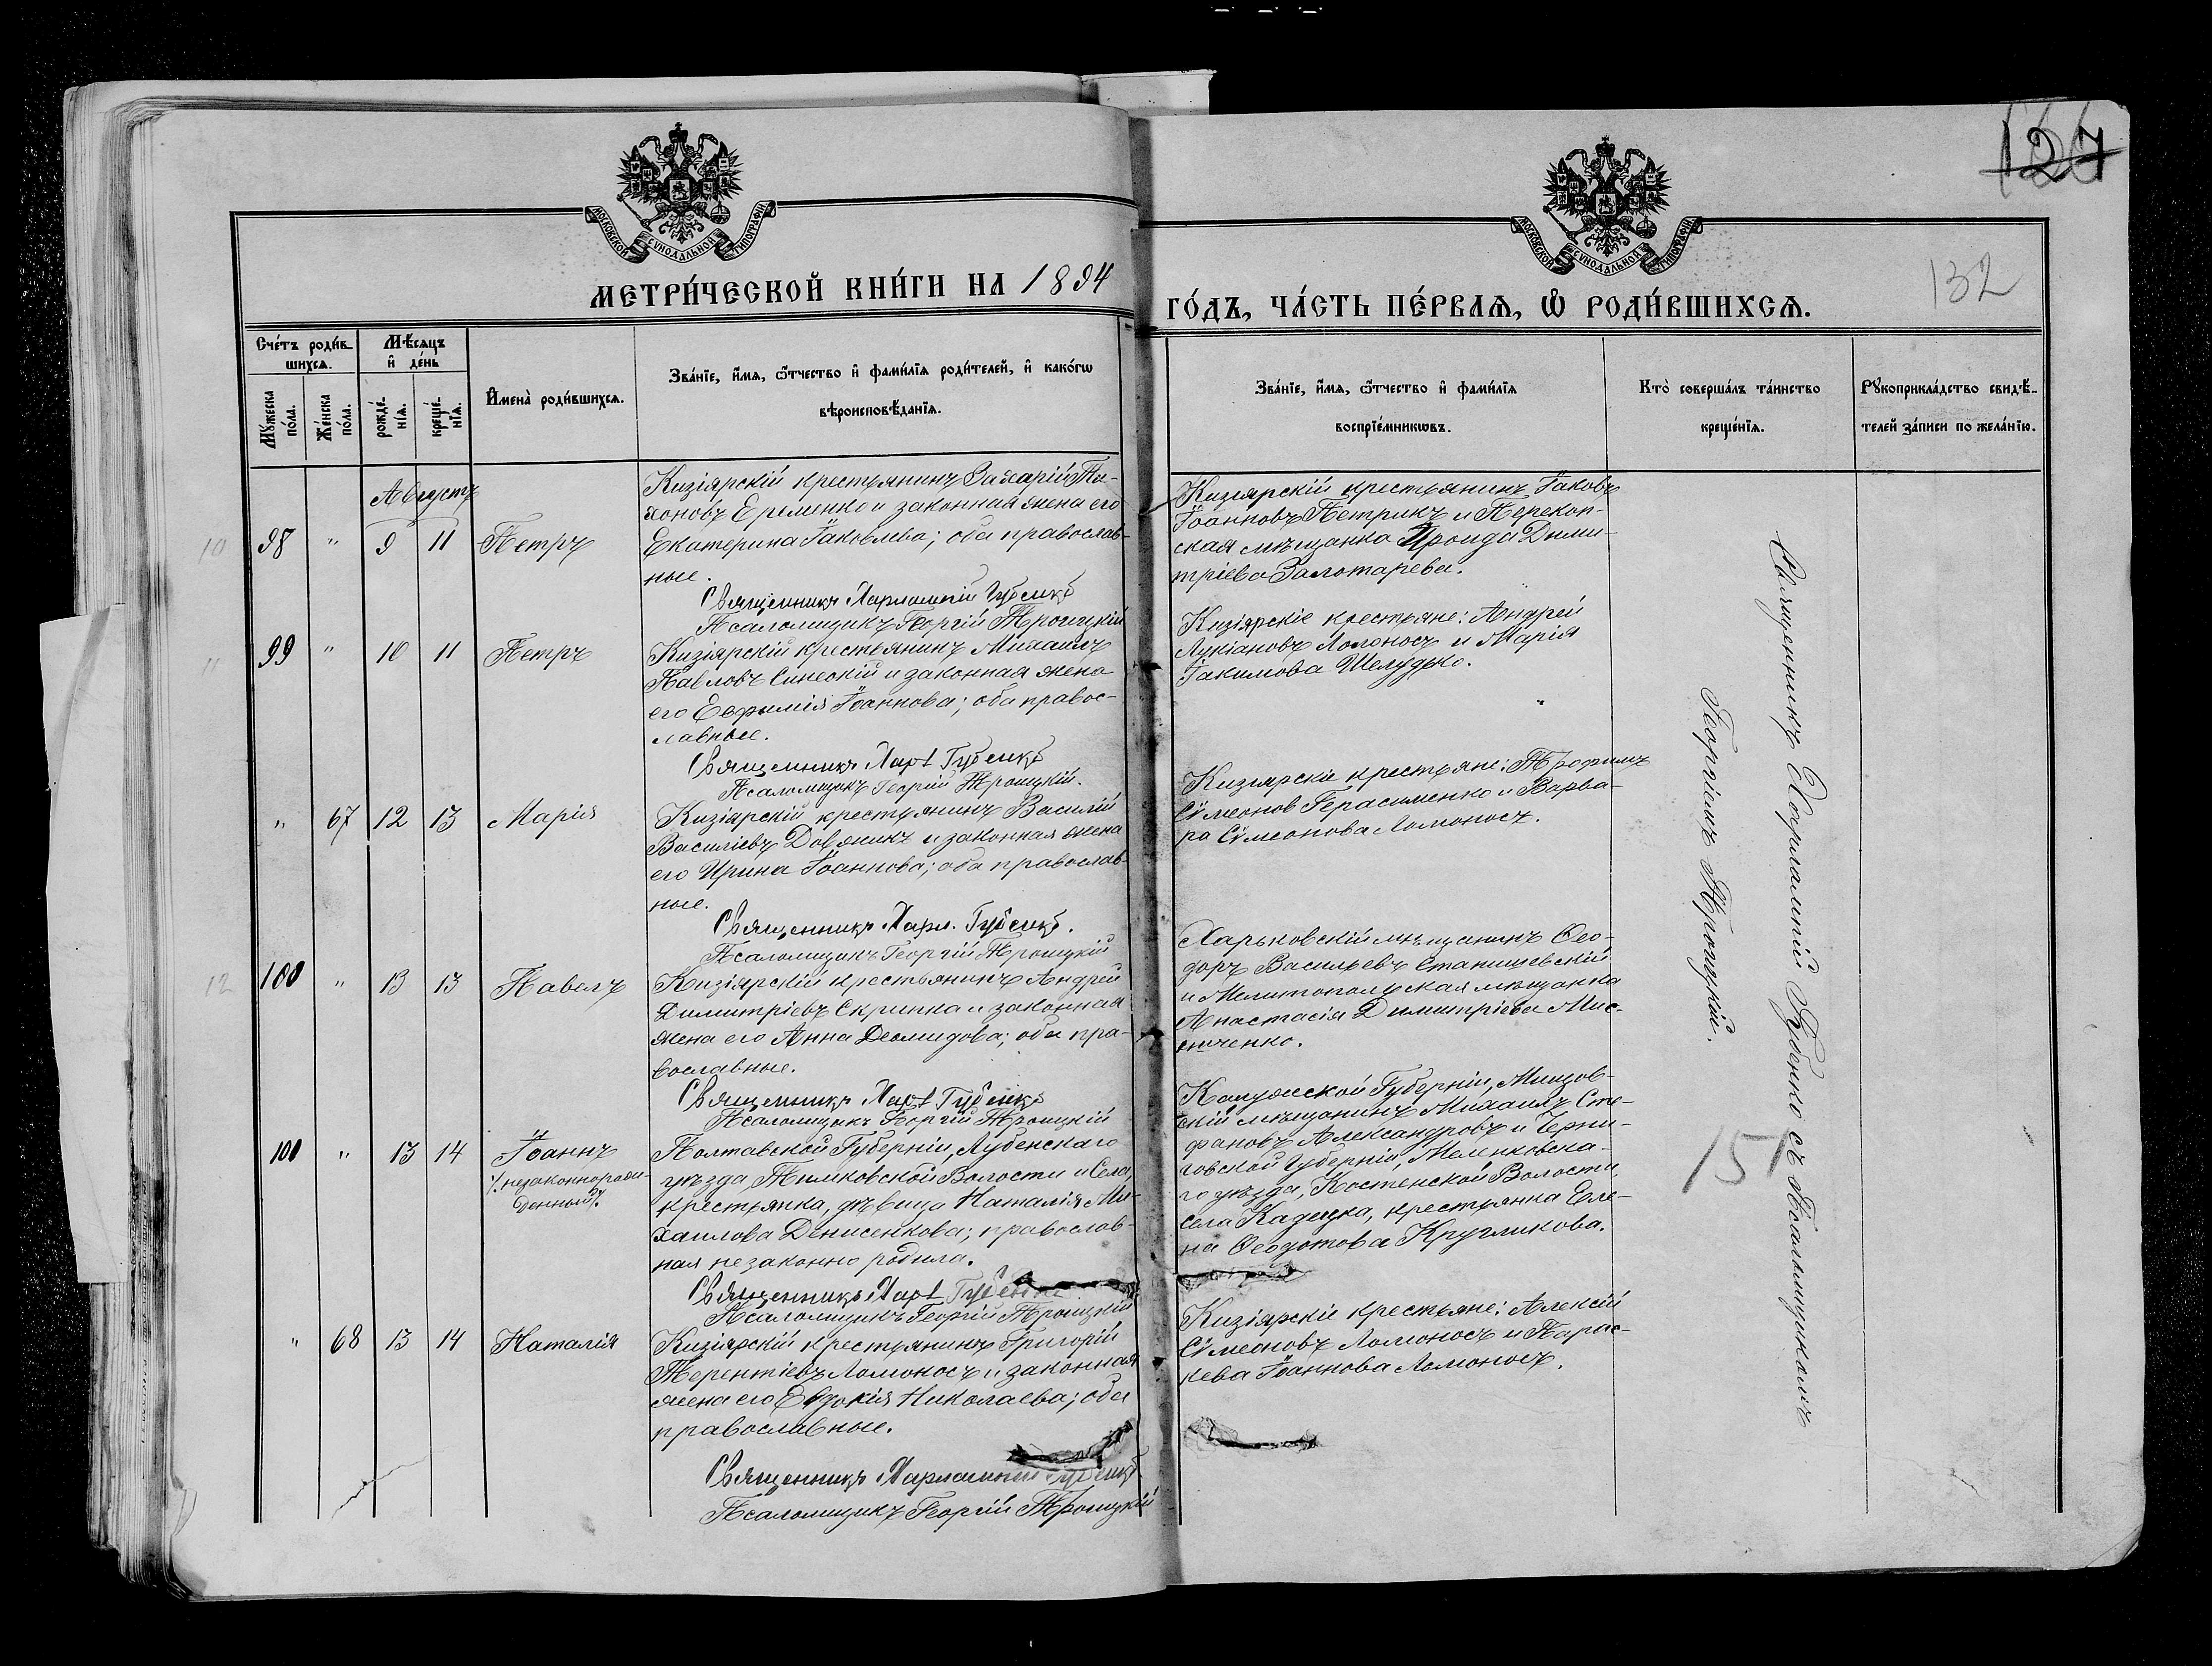 127
132
МОСКОВСКОЙ СѴНОДАЛЬНОЙ ТИПОГРАФІИ
МОСКОВСКОЙ СѴНОДАЛЬНОЙ ТИПОГРАФІИ
МЕТРИ́ЧЕСКОЙ КНИ́ГИ НА 1894
ГО́ДЪ, ЧА́СТЬ ПЕ́РВАѦ, Ѽ РОДИ́ВШИХСѦ.
Сче́тъ роди́в-
шихсѧ.
Мѣ́сѧцъ
и҆ де́нь
Мꙋ́жеска
по́ла.
Же́нска
по́ла.
рожде́-
нїѧ.
креще́-
нїѧ.
И҆мена̀ роди́вшихсѧ.
Зва́нїе, и҆́мѧ, ѻ҆́тчество и҆ фами́лїѧ роди́телей, и҆ како́гѡ
вѣроисповѣ́данїѧ.
Зва́нїе, и҆́мѧ, ѻ҆́тчество и҆ фами́лїѧ
воспрїе́мникѡвъ.
Кто̀ соверша́лъ та́инство
креще́нїѧ.
Рꙋкоприкла́дство свидѣ́-
телей за́писи по жела́нїю.
Августъ
10 98 " 9 11 Петръ
Кизіярскій крестьянинъ Захарій Па-
хоновъ Еременко и законная жена его
Екатерина Іаковлева; оба православ-
ные.
Священникъ Харлампій Губенко
Псаломщикъ Георгій Троицкій
Кизіярскій крестьянинъ Іаковъ
Іоанновъ Петрикъ и Перекоп-
ская мѣщанка Ироида Дими-
тріева Залотарева.
11 99 " 10 11 Петръ
Кизіярскій крестьянинъ Михаилъ
Павловъ Синескій и законная жена
его Евфимія Іоаннова; оба правос-
лавные.
Священникъ Харл Губенко
Псаломщикъ Георгій Троицкій.
Кизіярскіе крестьяне: Андрей
Лукіановъ Ломоносъ и Марія
Іакимова Шелудько.
" 67 12 13 Марія
Кизіярскій крестьянинъ Василій
Василіевъ Довженкъ и законная жена
его Ирина Іоаннова; оба православ-
ные.
Священникъ Харл. Губенко.
Псаломщикъ Георгій Троицкій
Кизіярскіе крестьяне: Трофимъ
Сѵмеонов Герасименко и Варва-
ра Сѵмеонова Ломоносъ.
12 100 " 13 13 Павелъ
Кизіярскій крестьянинъ Андрей
Димитріевъ Скрипка и законная
жена его Анна Деомидова; оба пра-
вославные.
Священникъ Харл Губенко
Псаломщикъ Георгій Троицкій
Харьковскій мѣщанинъ Ѳео-
доръ Васильевъ Станишевскій
и Мелитопольская мѣщанка
Анастасія Димитріева
101 " 13 14 Іоаннъ
/. незаконнорож-
денный /.
Полтавской Губерніи, Лубенскаго
уѣзда, Волости и Села,
крестьянка, дѣвица Наталія Ми-
хаилова Денисенкова; православ-
ная незаконно родила.
Священникъ Харл Губенко
Псаломщикъ Георгій Троицкій
Калужской Губерніи,
мѣщанинъ Михаилъ Сте-
фановъ Александровъ и Черни-
говской Губерніи,
го уѣзда, Костенской Волости
села крестьянка Еле-
на Ѳеодотова Кругликова.
" 68 13 14 Наталія
Кизіярскій крестьянинъ Григорій
Терентіевъ Ломоносъ и законная
жена его Евдокія Николаева; оба
православные.
Священникъ Харлампій Губенко
Псаломщикъ Георгій Троицкій
Кизіярскіе крестьяне: Алексій
Сѵмеоновъ Ломоносъ и Парас-
кева Іоаннова Ломоносъ.
Священникъ Харлампій Губенко съ Псаломщикомъ
Георгіемъ Троицкій.
151